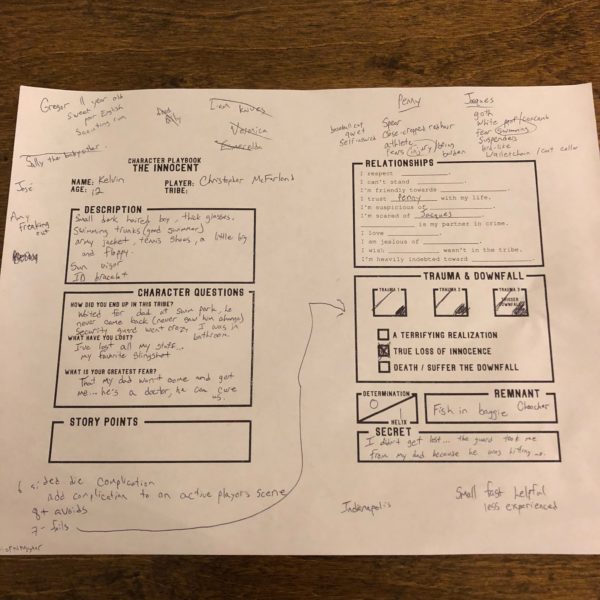 Gregor 11 year old
Sweet
poor English
Scouting
Liam Knives
Veronica
Esmerelda
Sally the babysitter
José
Amy
freaking
out
Penny
Spear
close-cropped red hair
athletic
fears injury/being
burden
baseball cut
quiet
Jacques
goth
white
fear swimming
suspenders
CHARACTER PLAYBOOK
THE INNOCENT
NAME: Kelvin
AGE: 12
PLAYER: Christopher McFarland
TRIBE:
DESCRIPTION
Small dark haired boy, thick glasses.
Swimming trunks (good swimmer)
army jacket, tennis shoes, a little big
and floppy.
Sun visor
ID bracelet
CHARACTER QUESTIONS
HOW DID YOU END UP IN THIS TRIBE?
Waited for dad at swim park, he
never came back (never saw him change)
Security guard went crazy, I was in
bathroom
WHAT HAVE YOU LOST?
I've lost all my stuff...
my favorite slingshot
WHAT IS YOUR GREATEST FEAR?
That my dad won't come and get
me... he's a doctor, he can cure
us.
STORY POINTS
6 sided die complication
add complication to an active players scene
8+ avoids
7- fails
RELATIONSHIPS
I respect
I can't stand
I'm friendly towards
I trust Penny with my life.
I'm suspicious of
I'm scared of Jacques
is my partner in crime.
I love
I am jealous of
I wish wasn't in the tribe.
I'm heavily indebted toward
TRAUMA & DOWNFALL
TRAUMA 1
TRAUMA 2
TRAUMA 3
TRIGGER
DOWNFALL
A TERRIFYING REALIZATION
TRUE LOSS OF INNOCENCE
DEATH / SUFFER THE DOWNFALL
DETERMINATION
0
1
HELIX
REMNANT
Fish in baggie
SECRET
I didn't get lost... the guard took me
from my dad because he was biting me.
Small fast helpful
less experienced